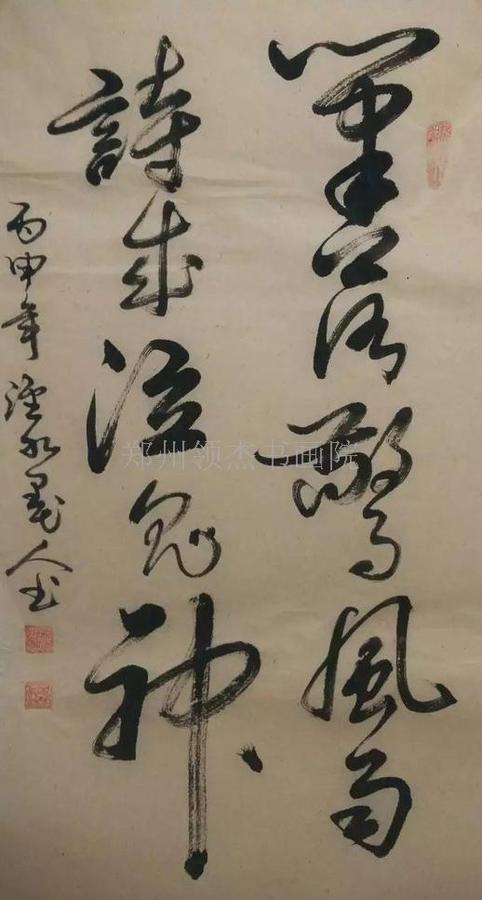 筆落驚風雨
詩成泣鬼神
丙申年 墨人书
郑州领杰书画院